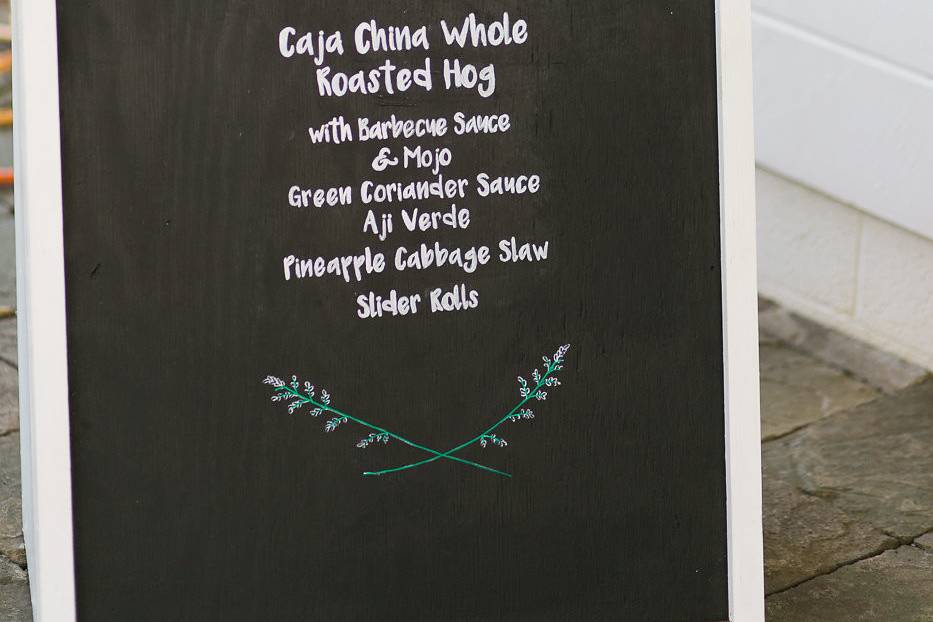 Caja China Whole
Roasted Hog
with Barbecue Sauce
& Mojo
Green Coriander Sauce
Aji Verde
Pineapple Cabbage Slaw
Slider Rolls